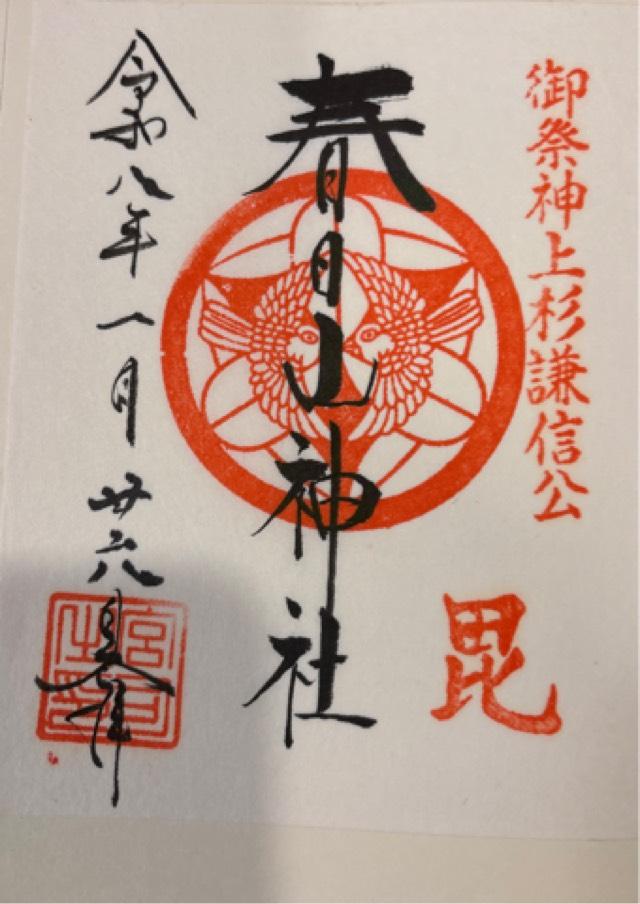 御祭神上杉謙信公
毘
春日山神社
令和八年一月廿六日
奉拝